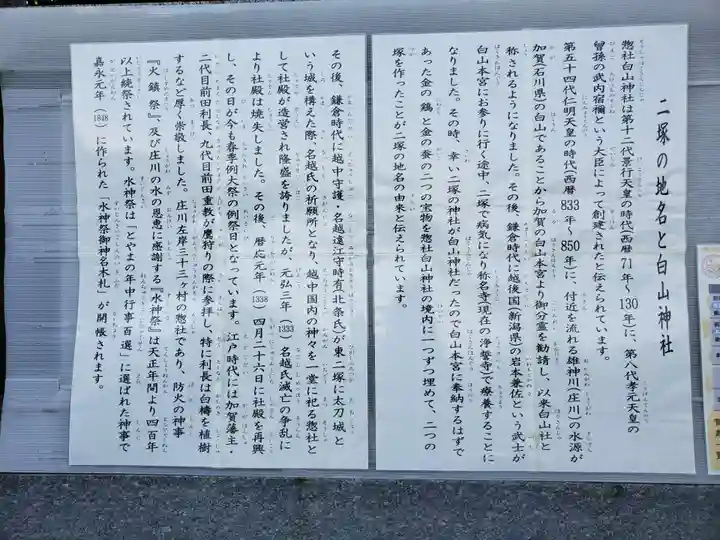 二塚の地名と白山神社
惣社白山神社は第十二代景行天皇の時代(西暦71年〜130年)に、第八代孝元天皇の
曾孫の武内宿禰という大臣によって創建されたと伝えられています。
第五十四代仁明天皇の時代(西暦833年〜850年)に、付近を流れる雄神川(庄川)の水源が
加賀(石川県)の白山であることから加賀の白山本宮より御分霊を勧請し、以来白山社と
称されるようになりました。その後、鎌倉時代に越後国(新潟県)の岩本兼佐という武士が
白山本宮にお参りに行く途中、二塚で病気になり称名寺(現在の浄誓寺)で療養することに
なりました。その時、幸い二塚の神社が白山神社だったので白山本宮に奉納するはずで
あった金の鶏と金の蚕の二つの宝物を惣社白山神社の境内に一つずつ埋めて、二つの
塚を作ったことが二塚の地名の由来と伝えられています。
その後、鎌倉時代に越中守護・名越遠江守時有(北条氏)が東二塚に太刀城と
いう城を構えた際、名越氏の祈願所となり、越中国内の神々を一堂に祀る惣社と
して社殿が造営され隆盛を誇りましたが、元弘三年(1333)名越氏滅亡の争乱に
より社殿は焼失しました。その後、暦応元年(1338)四月二十六日に社殿を再興
し、その日が今も春季例大祭の例祭日となっています。江戸時代には加賀藩主・
二代目前田利長、九代目前田重教が鷹狩りの際に参拝し、特に利長は白檮を植樹
するなど厚く崇敬しました。庄川左岸三十三ヶ村の惣社であり、防火の神事
『火鎮祭』、及び庄川の水の恩恵に感謝する『水神祭』は天正年間より四百年
以上続祭されています。水神祭は「とやまの年中行事百選」に選ばれた神事で
嘉永元年(1848)に作られた「水神祭御神名木札」が開帳されます。